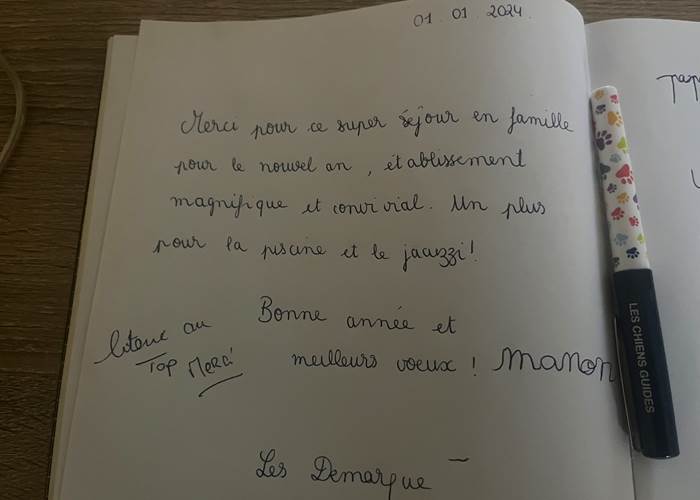 01 01 2024
Merci pour ce super séjour en famille
pour le nouvel an, établissement
magnifique et convivial. Un plus
pour la piscine et le jacuzzi!
Bonne année et
meilleurs voeux ! Manon
au
Top Merci
Les Demarque
LES CHIENS GUIDES